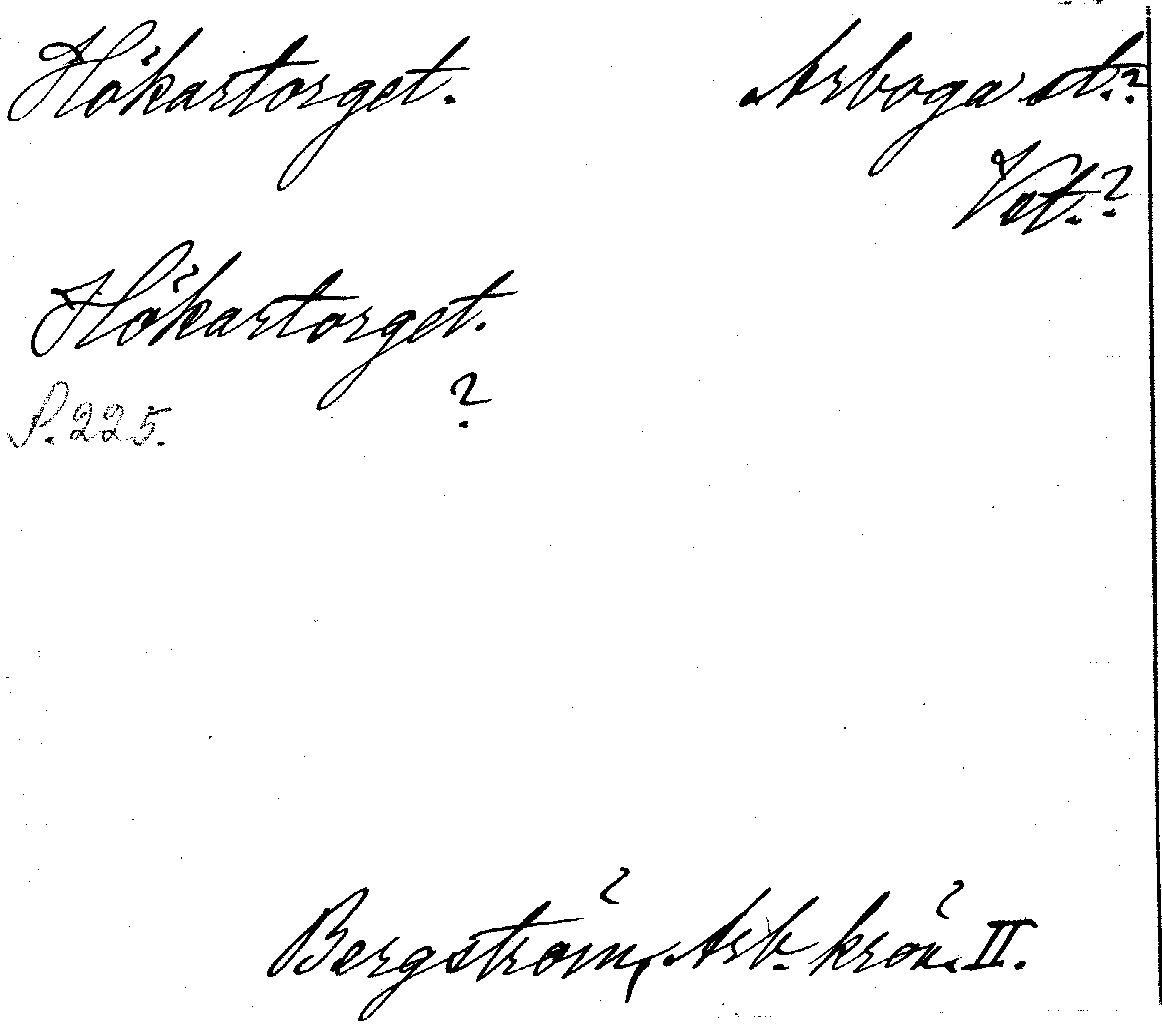 Hökartorget. Arboga st.?
Vst.?
Hökartorget.
?
S. 225.
Bergström, Arb. krön. II.